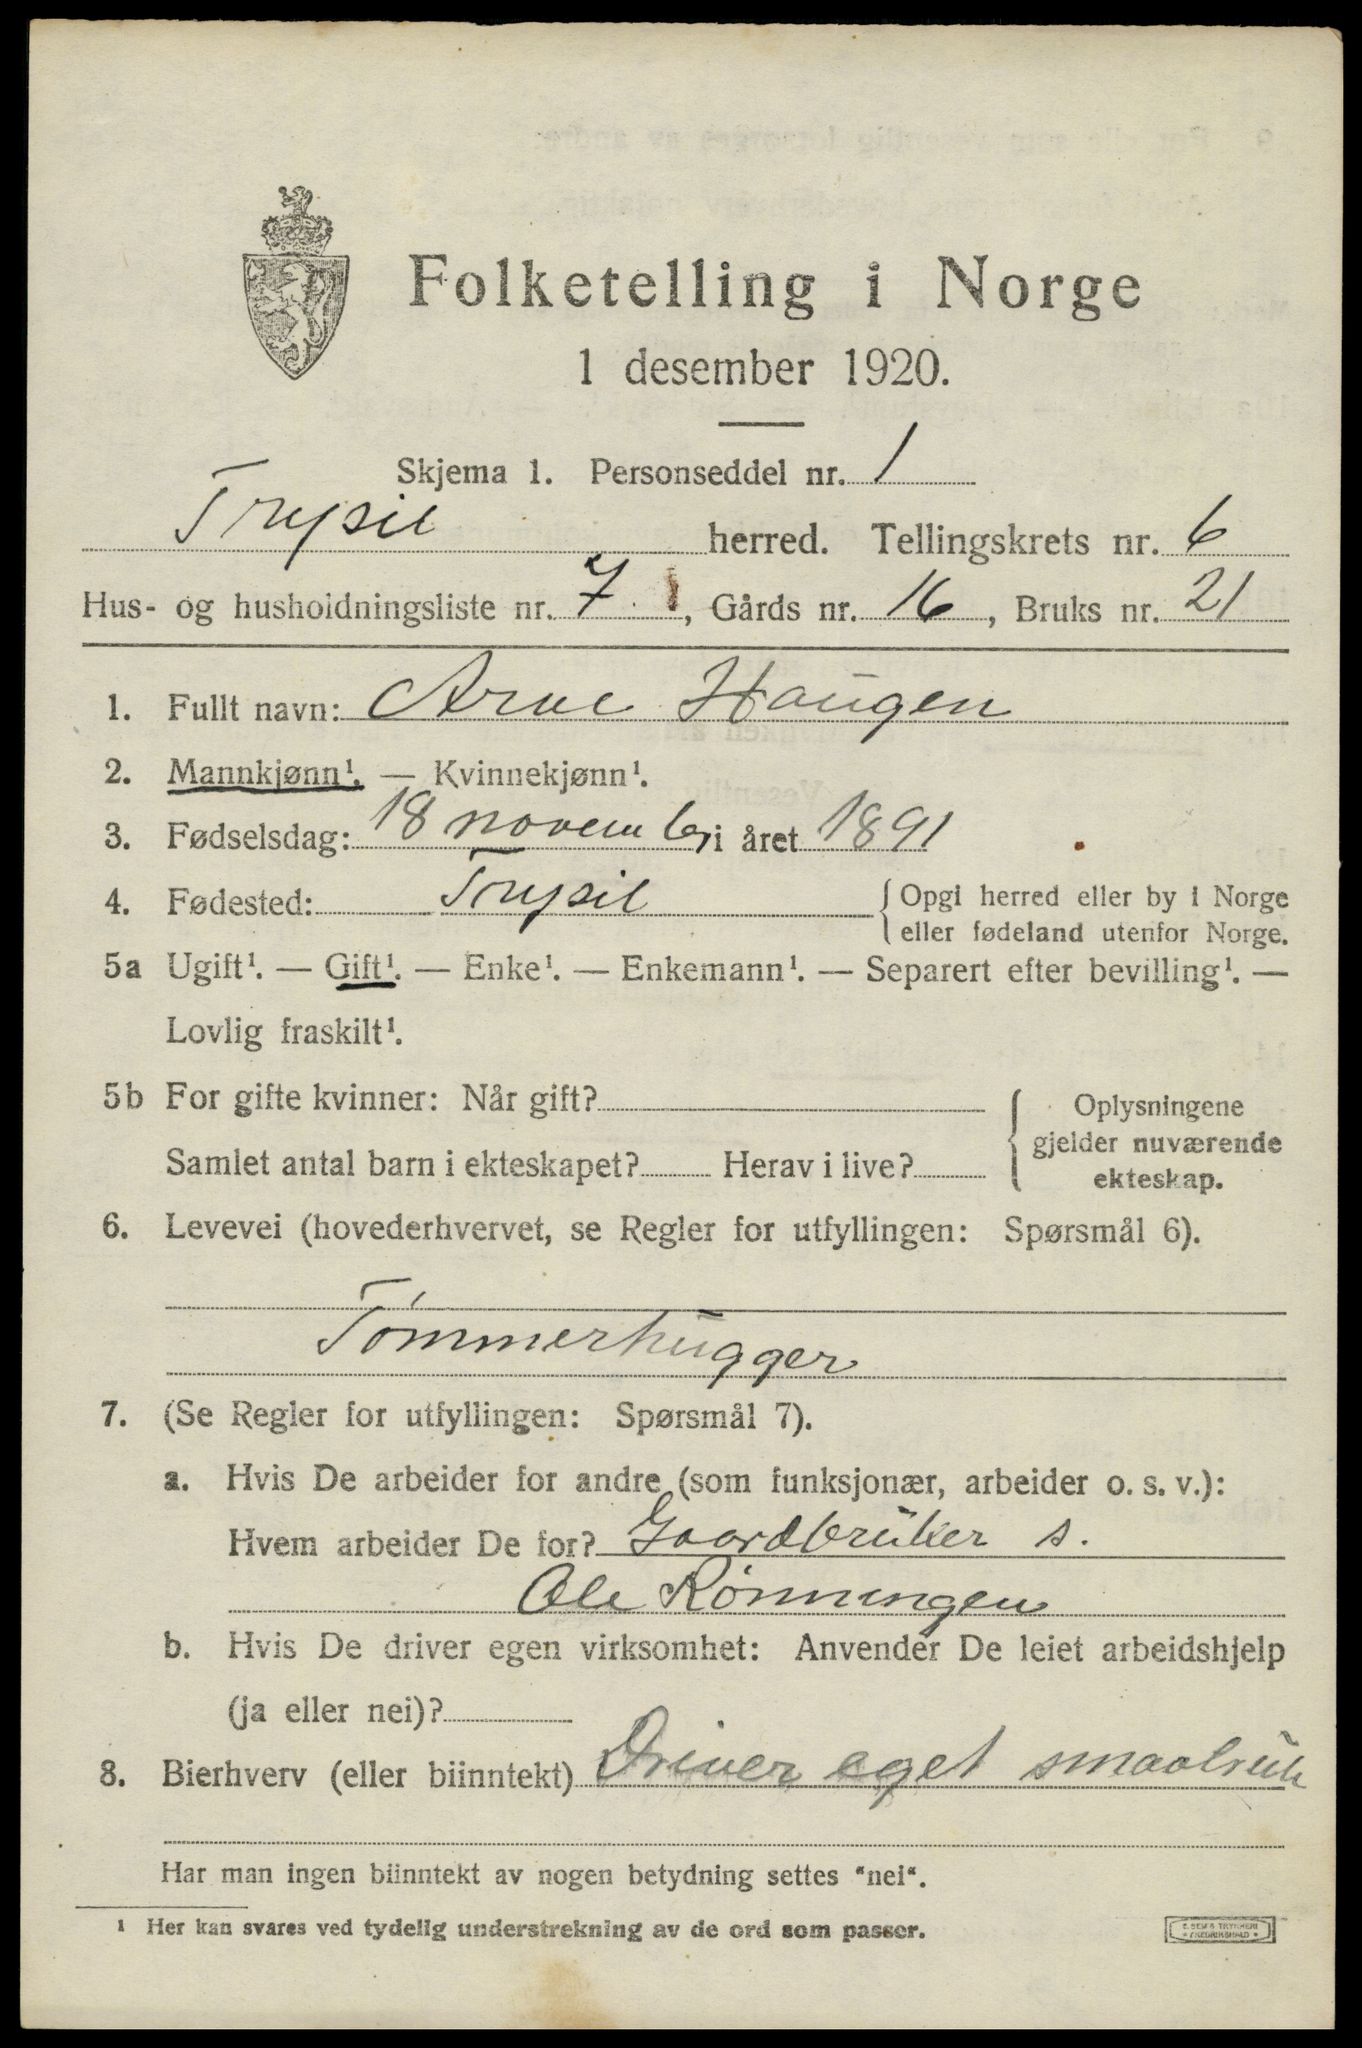 Folketelling i Norge
1 desember 1920.
Skjema 1. Personseddel nr. 1
Trysil herred. Tellingskrets nr. 6
Hus- og husholdningsliste nr. 7, Gårds nr. 16, Bruks nr. 21
1. Fullt navn: Arne Haugen
2. Mannkjønn¹. — Kvinnekjønn¹.
3. Fødselsdag: 18 november i året 1891
4. Fødested: Trysil {Opgi herred eller by i Norge
eller fødeland utenfor Norge.
5a Ugift¹. — Gift¹. — Enke¹. — Enkemann¹. — Separert efter bevilling¹. —
Lovlig fraskilt¹.
5b For gifte kvinner: Når gift? {Oplysningene
gjelder nuværende
Samlet antal barn i ekteskapet? Herav i live? ekteskap.
6. Levevei (hovederhvervet, se Regler for utfyllingen: Spørsmål 6).
Tømmerhugger
7. (Se Regler for utfyllingen: Spørsmål 7).
a. Hvis De arbeider for andre (som funksjonær, arbeider o. s. v.):
Hvem arbeider De for? Gaardbruker s.
Ole Rønningen
b. Hvis De driver egen virksomhet: Anvender De leiet arbeidshjelp
(ja eller nei)?
8. Bierhverv (eller biinntekt) Driver eget smaabruk
Har man ingen biinntekt av nogen betydning settes "nei".
¹ Her kan svares ved tydelig understrekning av de ord som passer.
E. SEM'S TRYKKERI
* FREDRIKSHALD *